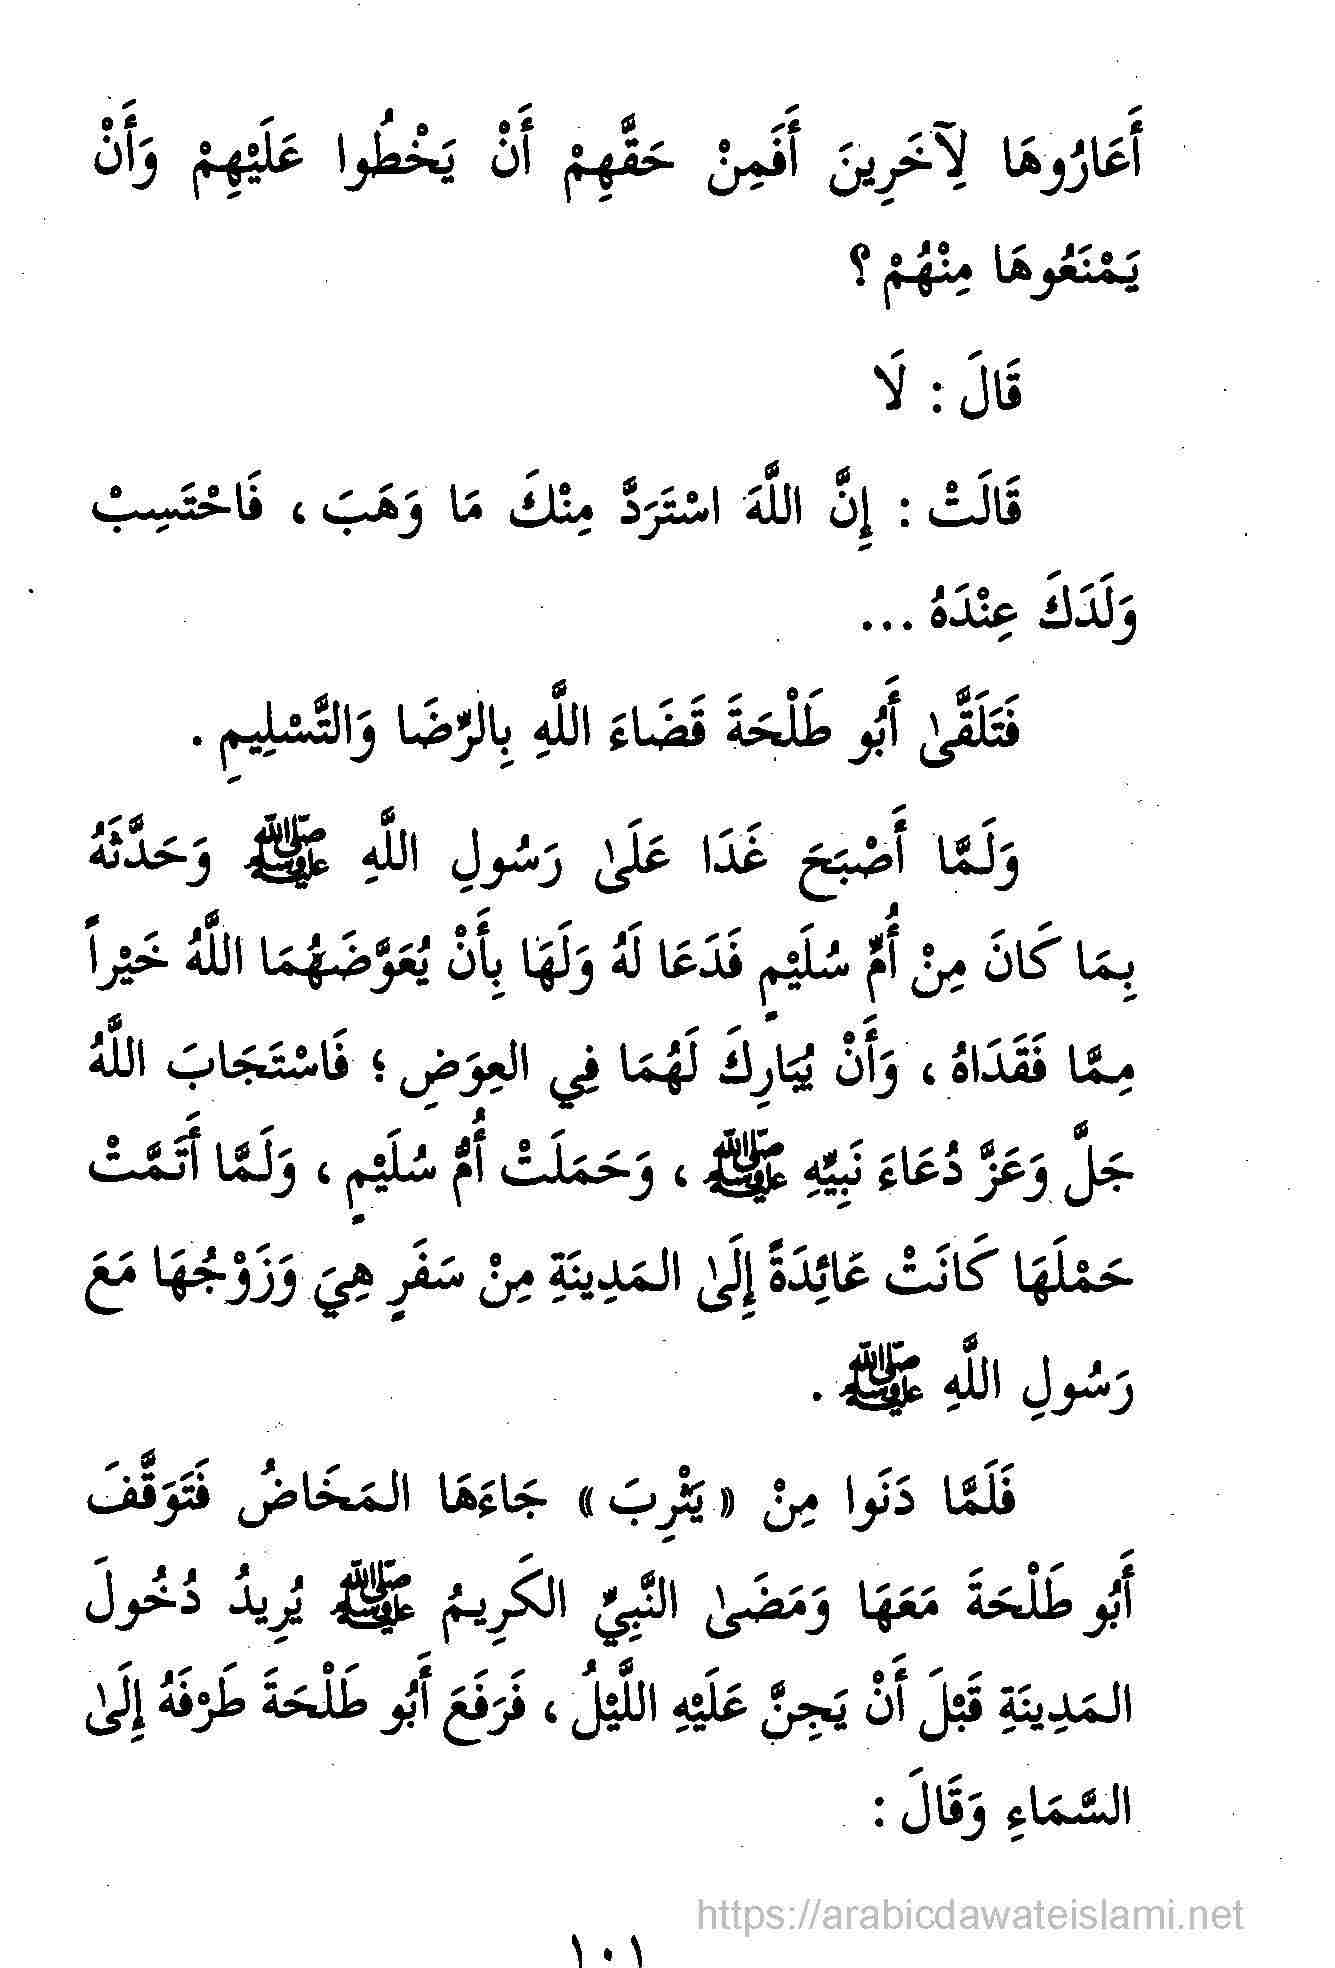 أَعَارُوهَا لِآخَرِينَ أَفَمِنْ حَقِّهِمْ أَنْ يَخْطُوا عَلَيْهِمْ وَأَنْ
يَمْنَعُوهَا مِنْهُمْ ؟
قَالَ : لَا
قَالَتْ : إِنَّ اللَّهَ اسْتَرَدَّ مِنْكَ مَا وَهَبَ ، فَاحْتَسِبْ
وَلَدَكَ عِنْدَهُ ...
فَتَلَقَّىٰ أَبُو طَلْحَةَ قَضَاءَ اللَّهِ بِالرِّضَا وَالتَّسْلِيمِ .
وَلَمَّا أَصْبَحَ غَدَا عَلَىٰ رَسُولِ اللَّهِ ﷺ وَحَدَّثَهُ
بِمَا كَانَ مِنْ أُمِّ سُلَيْمٍ فَدَعَا لَهُ وَلَهَا بِأَنْ يُعَوِّضَهُمَا اللَّهُ خَيْراً
مِمَّا فَقَدَاهُ ، وَأَنْ يُبَارِكَ لَهُمَا فِي العِوَضِ ؛ فَاسْتَجَابَ اللَّهُ
جَلَّ وَعَزَّ دُعَاءَ نَبِيِّهِ ﷺ ، وَحَمَلَتْ أُمُّ سُلَيْمٍ ، وَلَمَّا أَتَمَّتْ
حَمْلَهَا كَانَتْ عَائِدَةً إِلَىٰ المَدِينَةِ مِنْ سَفَرٍ هِيَ وَزَوْجُهَا مَعَ
رَسُولِ اللَّهِ ﷺ .
فَلَمَّا دَنَوا مِنْ « يَثْرِبَ » جَاءَهَا المَخَاضُ فَتَوَقَّفَ
أَبُو طَلْحَةَ مَعَهَا وَمَضَىٰ النَّبِيُّ الكَرِيمُ ﷺ يُرِيدُ دُخُولَ
المَدِينَةِ قَبْلَ أَنْ يَجِنَّ عَلَيْهِ اللَّيْلُ ، فَرَفَعَ أَبُو طَلْحَةَ طَرْفَهُ إِلَىٰ
السَّمَاءِ وَقَالَ :
https://arabicdawateislami.net
١٠١